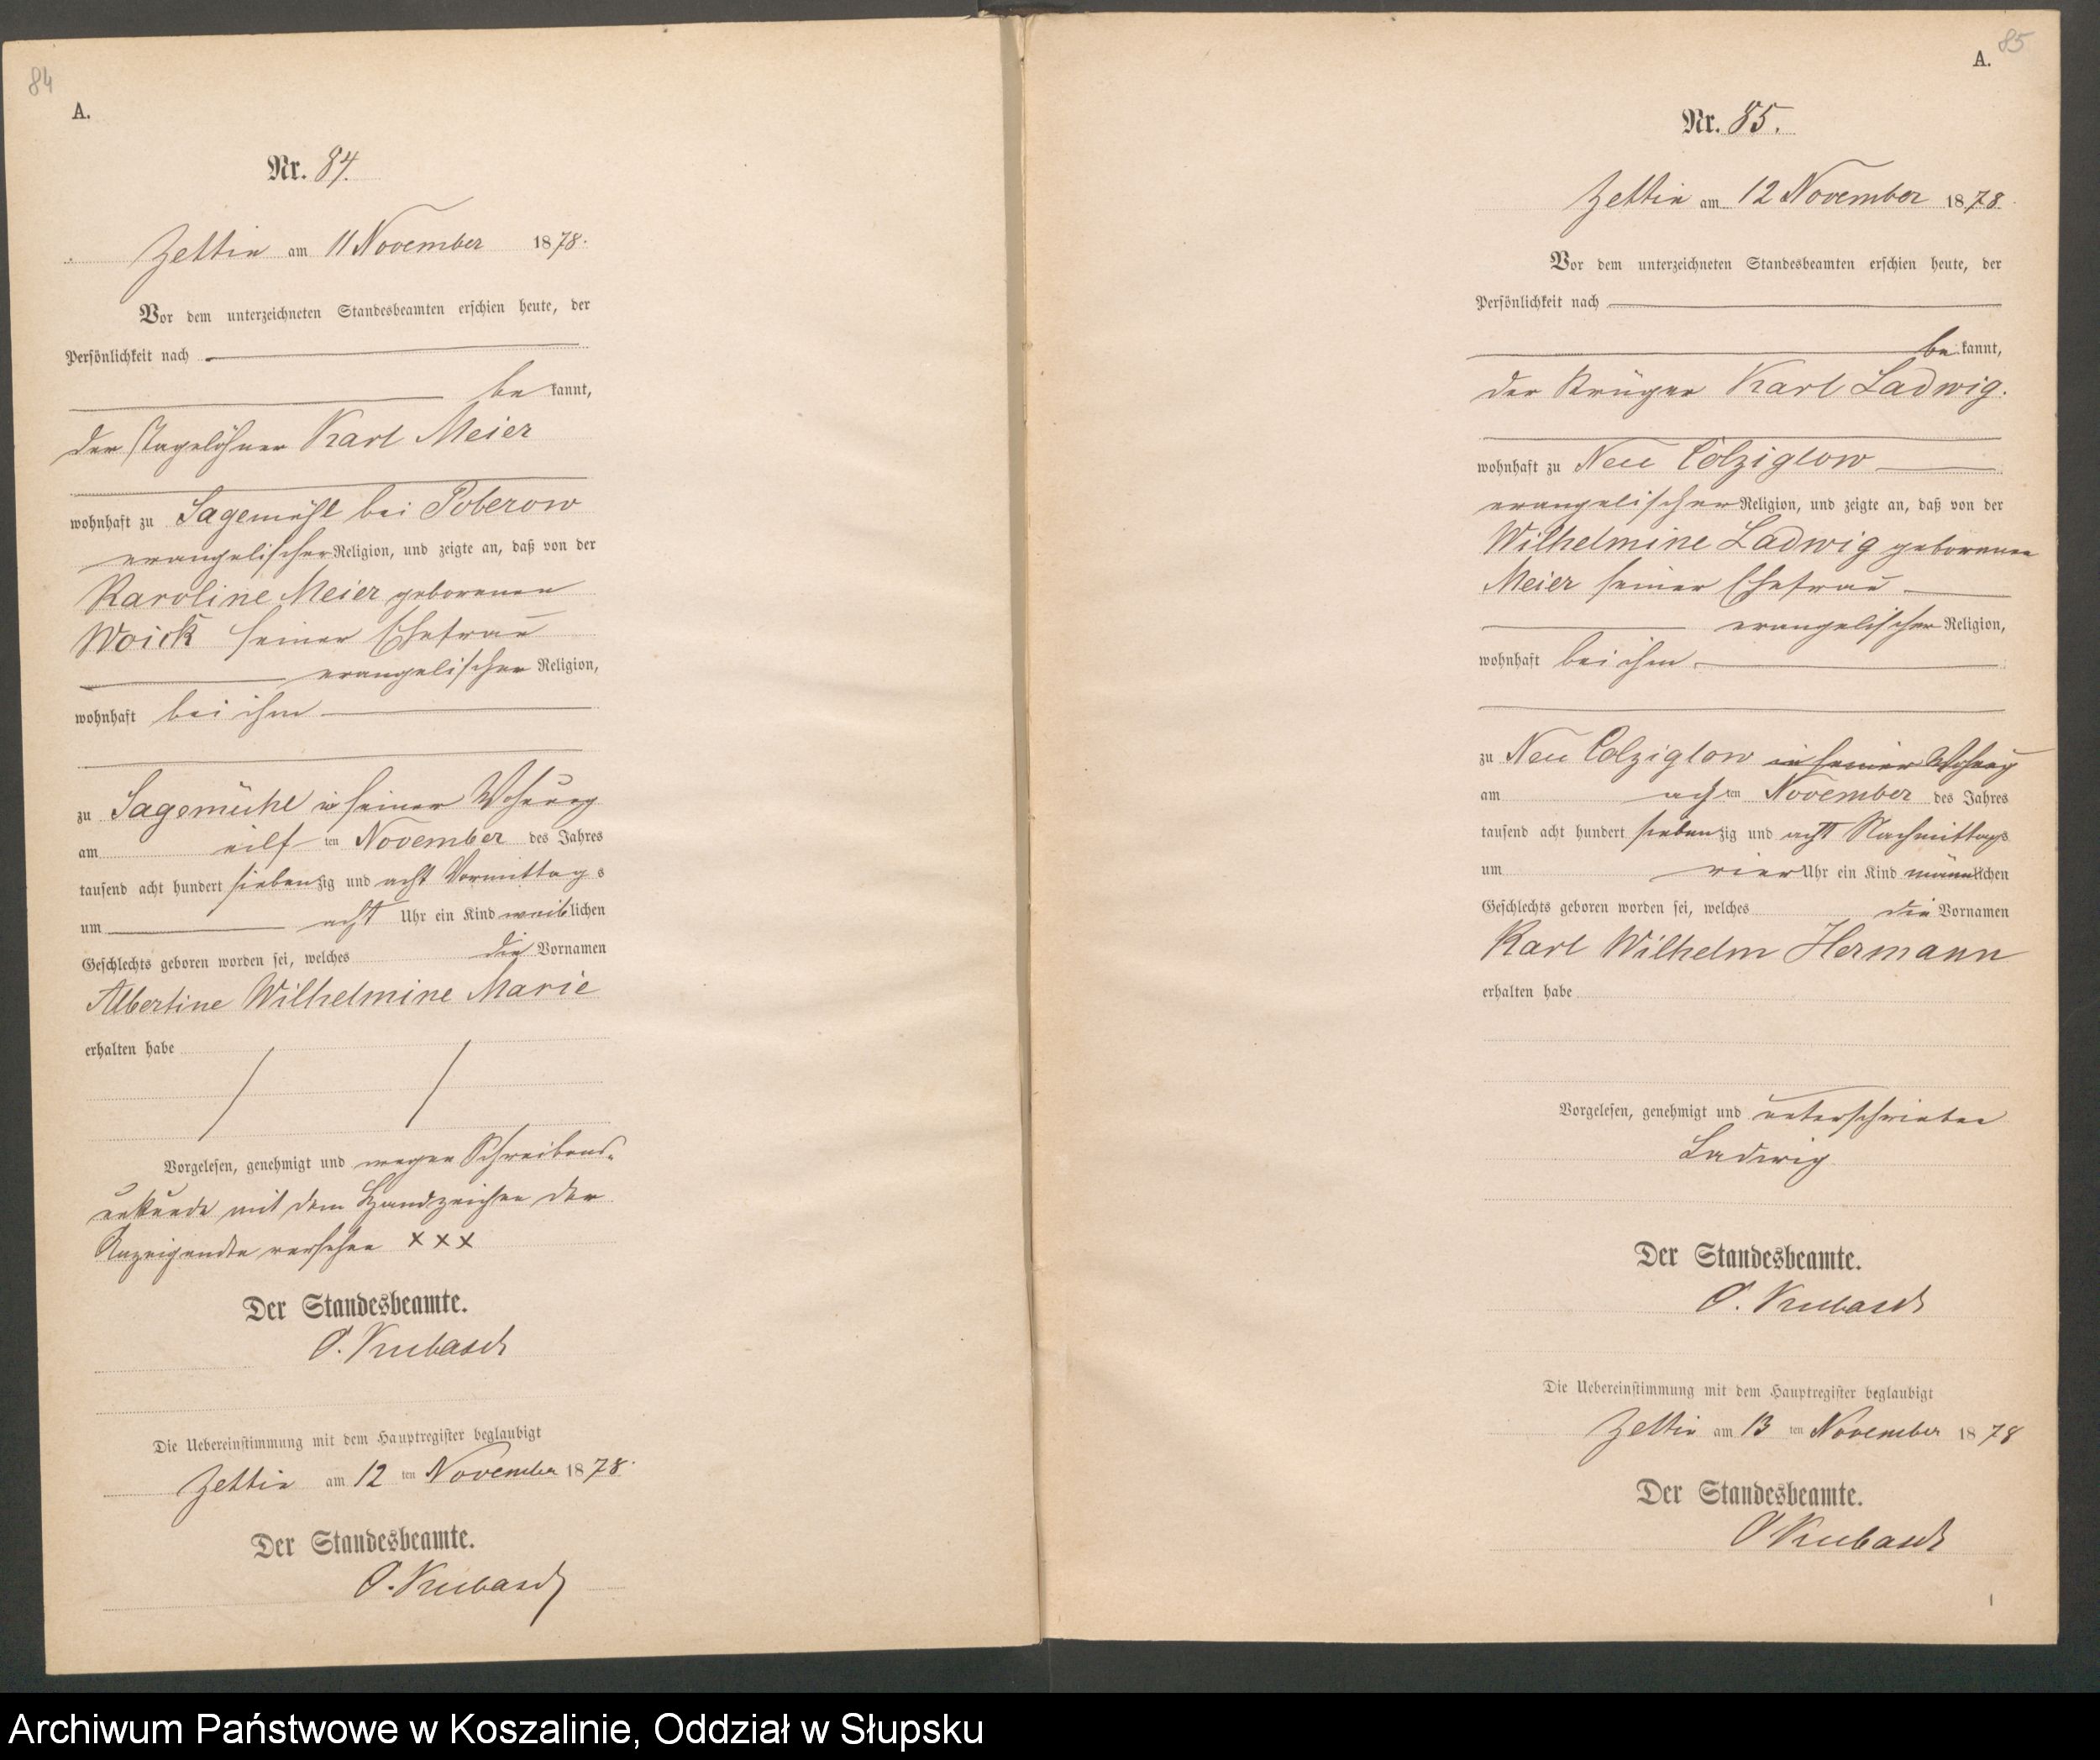 84
A.
Nr. 84.
Zettin am 11 November 1878.
Vor dem unterzeichneten Standesbeamten erschien heute, der
Persönlichkeit nach
bekannt,
der Tagelöhner Karl Meier
wohnhaft zu Sagemühl bei Poberow
evangelischer Religion, und zeigte an, daß von der
Karoline Meier geborenen
Woick seiner Ehefrau
evangelischer Religion,
wohnhaft bei ihm
zu Sagemühl in seiner Wohnung
am eilften November des Jahres
tausend acht hundert siebenzig und acht Vormittags
um acht Uhr ein Kind weiblichen
Geschlechts geboren worden sei, welches die Vornamen
Albertine Wilhelmine Marie
erhalten habe
Vorgelesen, genehmigt und wegen Schreibens-
unkunde mit dem Handzeichen der
Anzeigenden versehen XXX
Der Standesbeamte.
O. Kubasch
Die Uebereinstimmung mit dem Hauptregister beglaubigt
Zettin am 12 ten November 1878.
Der Standesbeamte.
O. Kubasch
85
A.
Nr. 85.
Zettin am 12 November 1878.
Vor dem unterzeichneten Standesbeamten erschien heute, der
Persönlichkeit nach
bekannt,
der Krüger Karl Ladwig.
wohnhaft zu Neu Colziglow
evangelischer Religion, und zeigte an, daß von der
Wilhelmine Ladwig geborenen
Meier seiner Ehefrau
evangelischer Religion,
wohnhaft bei ihm
zu Neu Colziglow in seiner Wohnung
am achten November des Jahres
tausend acht hundert siebenzig und acht Nachmittags
um vier Uhr ein Kind männlichen
Geschlechts geboren worden sei, welches die Vornamen
Karl Wilhelm Hermann
erhalten habe
Vorgelesen, genehmigt und unterschrieben
Ladwig
Der Standesbeamte.
O. Kubasch
Die Uebereinstimmung mit dem Hauptregister beglaubigt
Zettin am 13 ten November 1878
Der Standesbeamte.
O Kubasch
Archiwum Państwowe w Koszalinie, Oddział w Słupsku